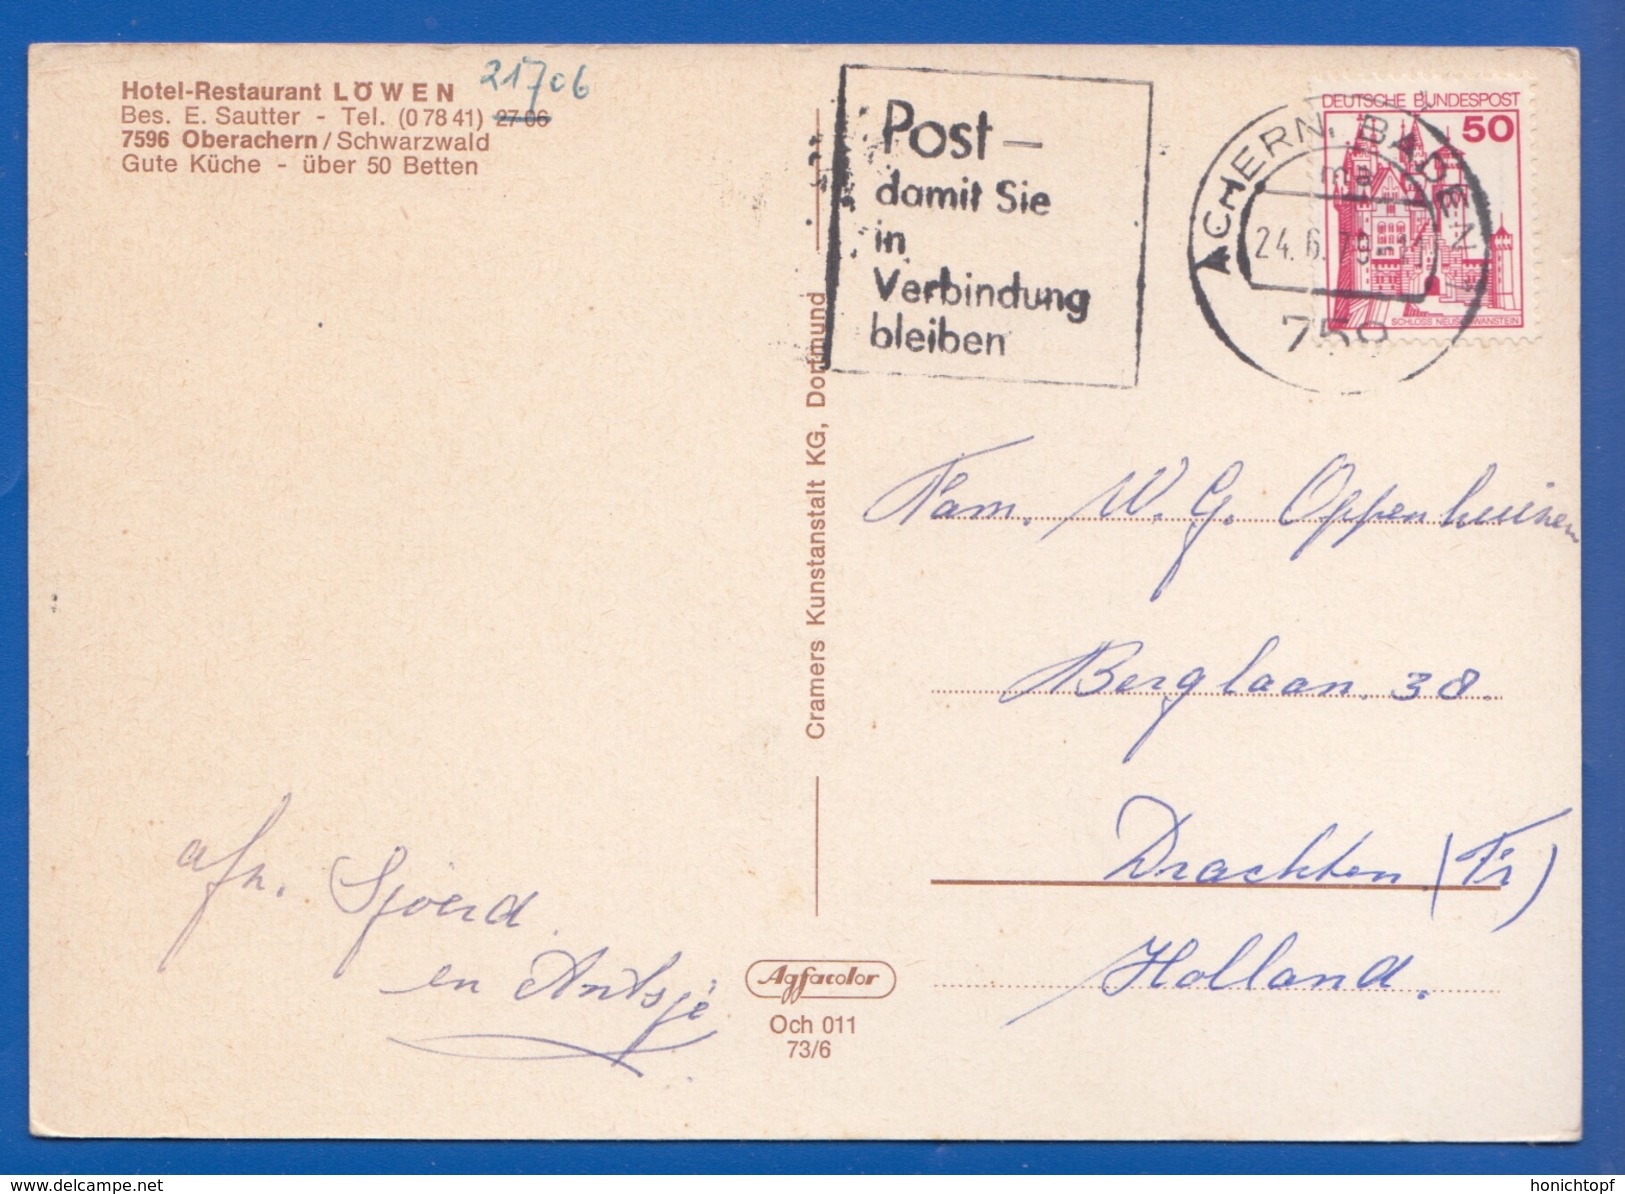 Hotel-Restaurant LÖWEN
Bes. E. Sautter - Tel. (0 78 41) 27 06
21706
7596 Oberachern/Schwarzwald
Gute Küche - über 50 Betten
Post –
damit Sie
in
Verbindung
bleiben
ACHERN, BADEN 1
ma
24.6.79-11
759
DEUTSCHE BUNDESPOST
50
SCHLOSS NEUSCHWANSTEIN
Cramers Kunstanstalt KG, Dortmund
Fam. W. G. Oppenhuizen
Berglaan. 38.
Drachten (Fr)
Holland.
afz. Sjoerd
en Antsje
Agfacolor
Och 011
73/6
www.delcampe.net
honichtopf